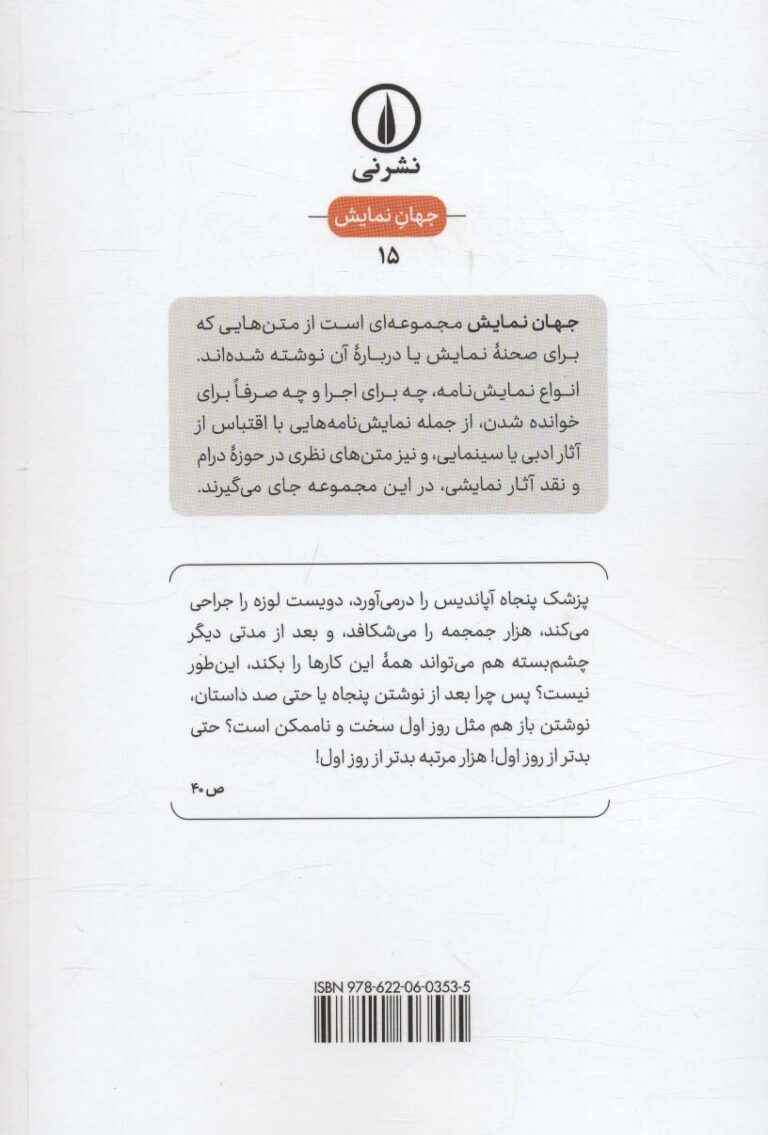 نشرنی
جهانِ نمایش
۱۵
جهان نمایش مجموعه‌ای است از متن‌هایی که
برای صحنهٔ نمایش یا دربارهٔ آن نوشته شده‌اند.
انواع نمایش‌نامه، چه برای اجرا و چه صرفاً برای
خوانده شدن، از جمله نمایش‌نامه‌هایی با اقتباس از
آثار ادبی یا سینمایی، و نیز متن‌های نظری در حوزهٔ درام
و نقد آثار نمایشی، در این مجموعه جای می‌گیرند.
پزشک پنجاه آپاندیس را درمی‌آورد، دویست لوزه را جراحی
می‌کند، هزار جمجمه را می‌شکافد، و بعد از مدتی دیگر
چشم‌بسته هم می‌تواند همهٔ این کارها را بکند، این‌طور
نیست؟ پس چرا بعد از نوشتن پنجاه یا حتی صد داستان،
نوشتن باز هم مثل روز اول سخت و ناممکن است؟ حتی
بدتر از روز اول! هزار مرتبه بدتر از روز اول!
ص ۴۰
ISBN 978-622-06-0353-5